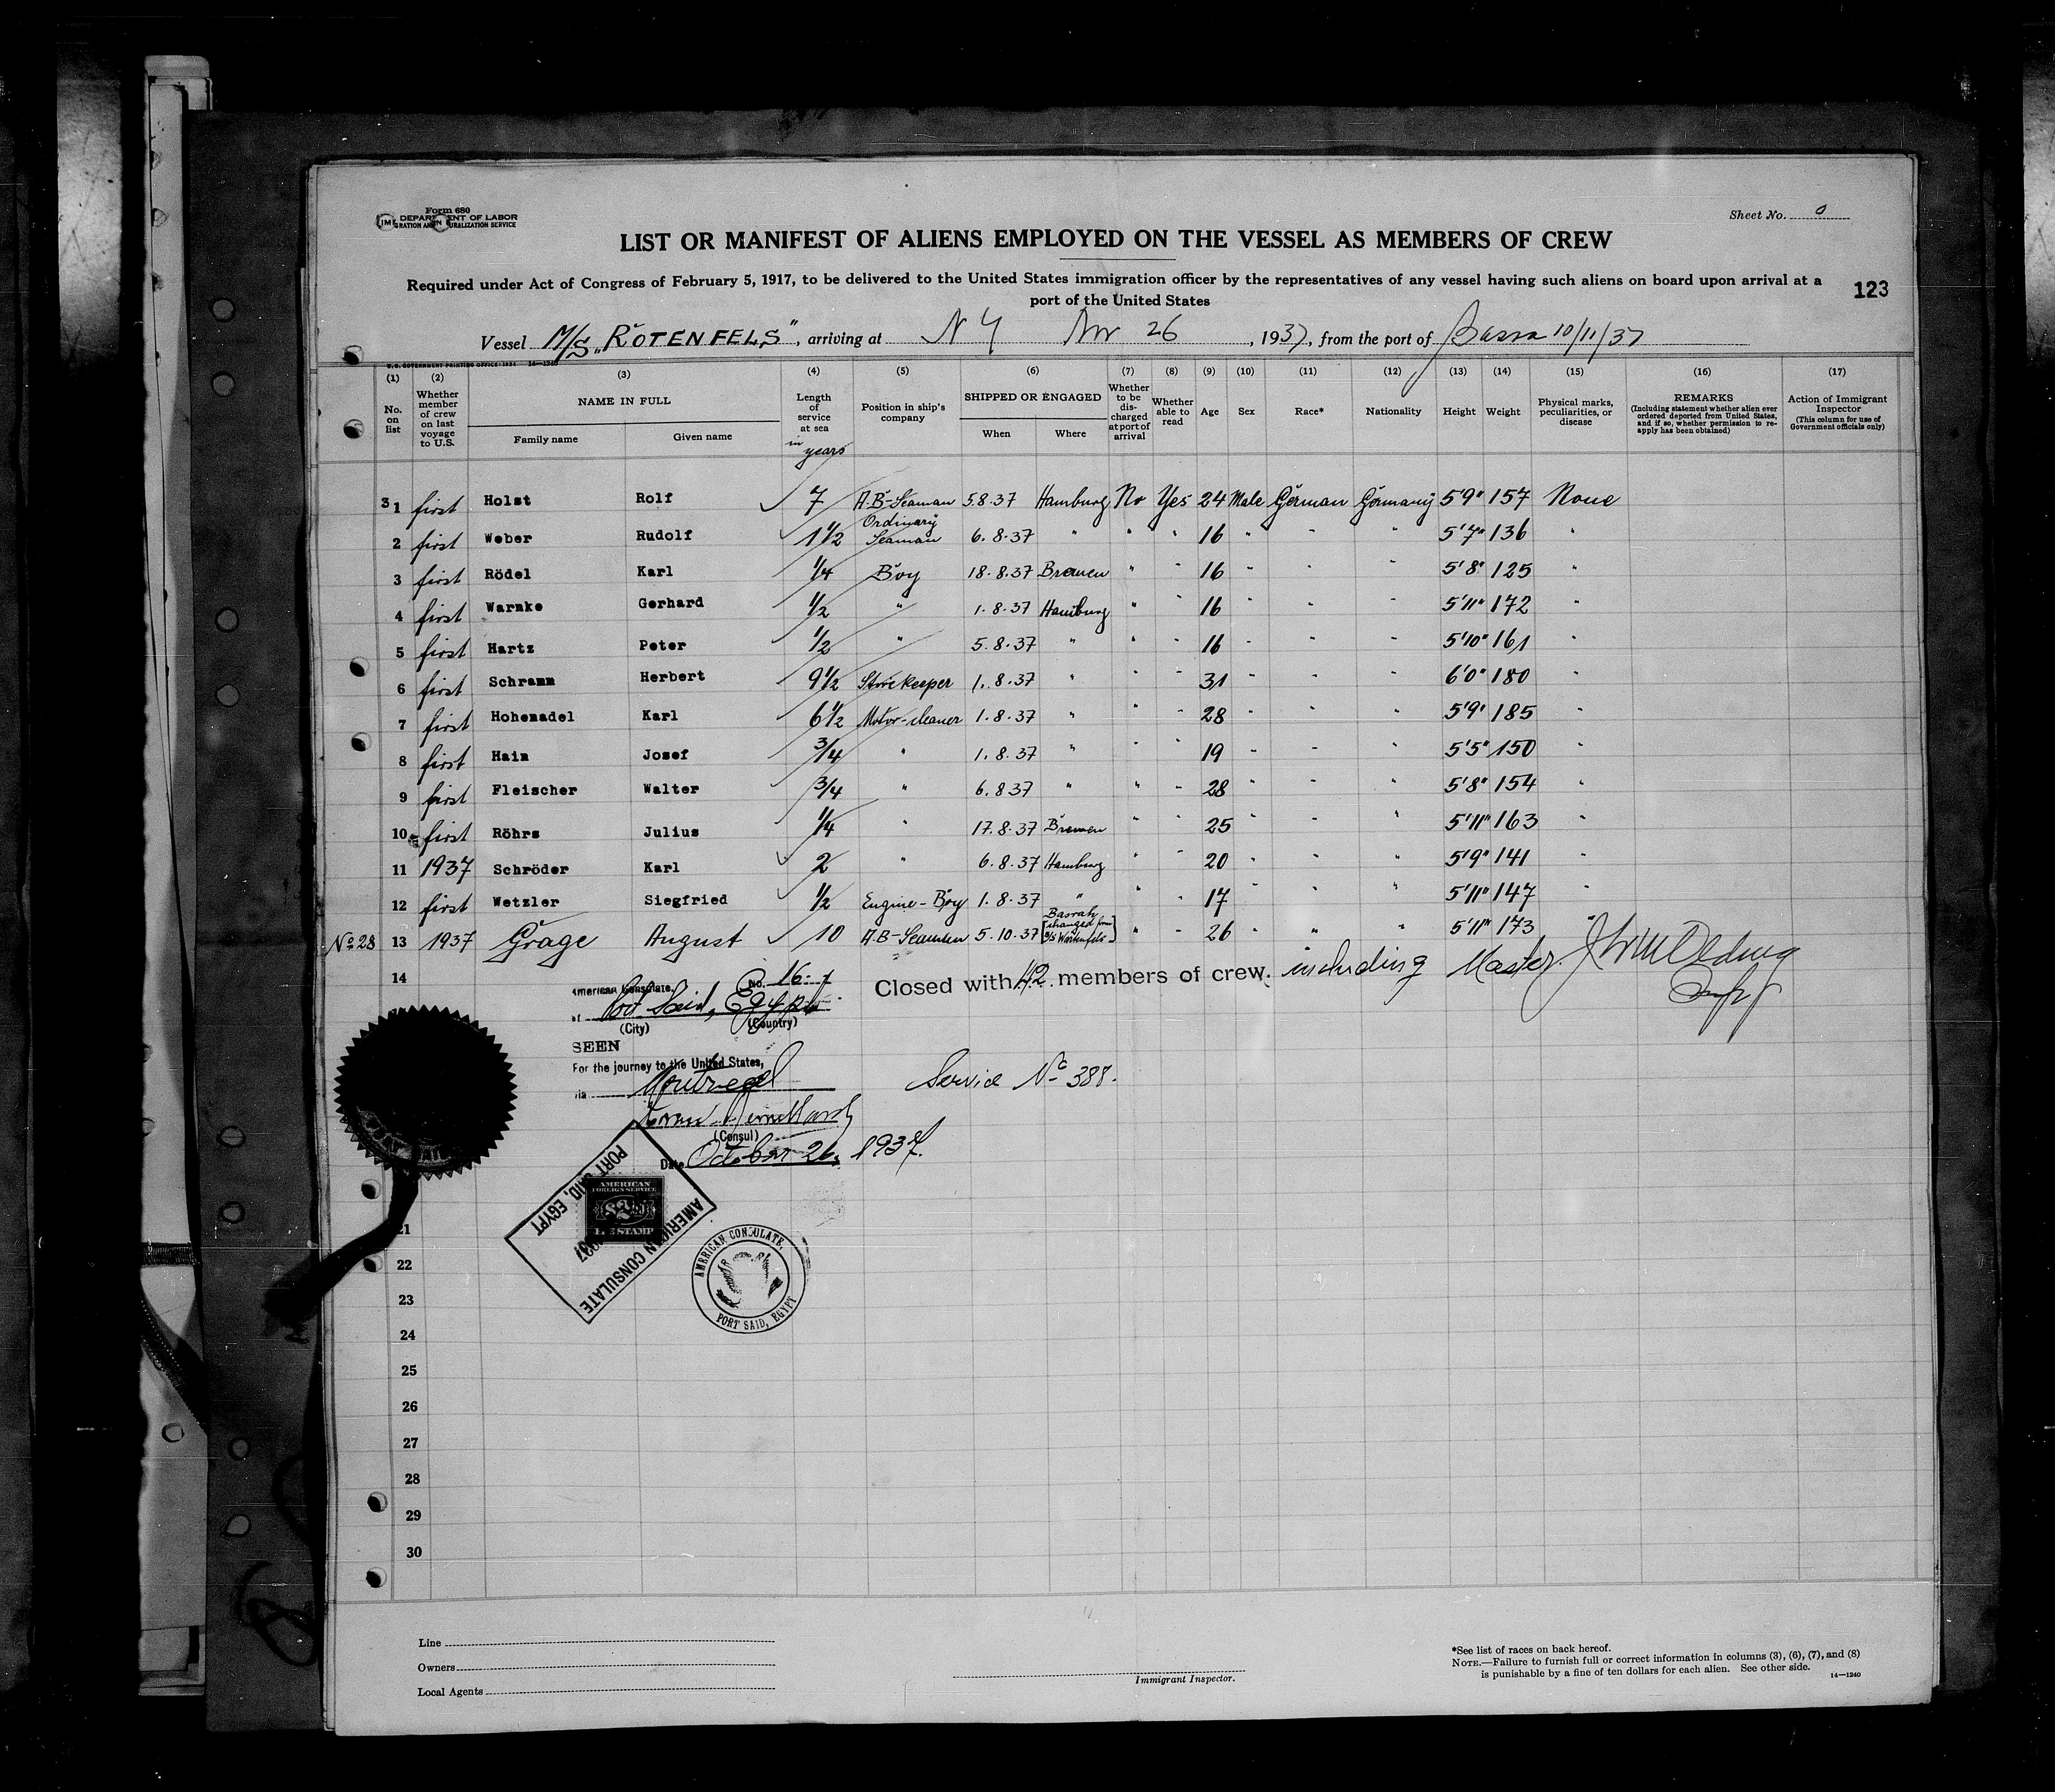 Form 680
DEPARTMENT OF LABOR
IMMIGRATION AND NATURALIZATION SERVICE
Sheet No. 0
LIST OR MANIFEST OF ALIENS EMPLOYED ON THE VESSEL AS MEMBERS OF CREW
Required under Act of Congress of February 5, 1917, to be delivered to the United States immigration officer by the representatives of any vessel having such aliens on board upon arrival at a
port of the United States
123
Vessel M/S "ROTENFELS", arriving at N Y Nov 26, 1937, from the port of Basra 10/11/37
U.S. GOVERNMENT PRINTING OFFICE: 1934 14—1240
(1) No. on list
(2) Whether member of crew on last voyage to U.S.
(3) NAME IN FULL
Family name Given name
(4) Length of service at sea in years
(5) Position in ship's company
(6) SHIPPED OR ENGAGED
When Where
(7) Whether to be discharged at port of arrival
(8) Whether able to read
(9) Age
(10) Sex
(11) Race*
(12) Nationality
(13) Height
(14) Weight
(15) Physical marks, peculiarities, or disease
(16) REMARKS (Including statement whether alien ever ordered deported from United States, and if so, whether permission to reapply has been obtained)
(17) Action of Immigrant Inspector (This column for use of Government officials only)
31 first Holst Rolf 7 A.B-Seaman 5.8.37 Hamburg No Yes 24 Male German Germany 5'9" 157 None
2 first Weber Rudolf 1 1/2 Ordinary Seaman 6.8.37 " " " 16 " " " 5'7" 136 "
3 first Rödel Karl 1/4 Boy 18.8.37 Bremen " " 16 " " " 5'8" 125 "
4 first Warnke Gerhard 1/2 " 1.8.37 Hamburg " " 16 " " " 5'11" 172 "
5 first Hartz Peter 1/2 " 5.8.37 " " " 16 " " " 5'10" 161 "
6 first Schramm Herbert 9 1/2 Storekeeper 1.8.37 " " " 31 " " " 6'0" 180 "
7 first Hohenadel Karl 6 1/2 Motor-cleaner 1.8.37 " " " 28 " " " 5'9" 185 "
8 first Hain Josef 3/4 " 1.8.37 " " " 19 " " " 5'5" 150 "
9 first Fleischer Walter 3/4 " 6.8.37 " " " 28 " " " 5'8" 154 "
10 first Röhrs Julius 1/4 " 17.8.37 Bremen " " 25 " " " 5'11" 163 "
11 1937 Schröder Karl 2 " 6.8.37 Hamburg " " 20 " " " 5'9" 141 "
12 first Wetzler Siegfried 1/2 Engine-Boy 1.8.37 " " " 17 " " " 5'11" 147 "
No 28 13 1937 Grage August 10 A.B-Seaman 5.10.37 Basrah [changed from Wartenfels] " " 26 " " " 5'11" 173 "
14
Closed with 42 members of crew. including Master.
American Consulate, No. 16-7
at Port Said, Egypt
(City) (Country)
SEEN
For the journey to the United States,
via Montreal
Service No 388.
(Consul)
Date October 26, 1937.
AMERICAN CONSULATE
PORT SAID, EGYPT
1937
AMERICAN
FOREIGN SERVICE
$2
FEE STAMP
AMERICAN CONSULATE,
PORT SAID, EGYPT
21
22
23
24
25
26
27
28
29
30
Line
Owners
Local Agents
Immigrant Inspector.
*See list of races on back hereof.
NOTE.—Failure to furnish full or correct information in columns (3), (6), (7), and (8)
is punishable by a fine of ten dollars for each alien. See other side.
14—1240